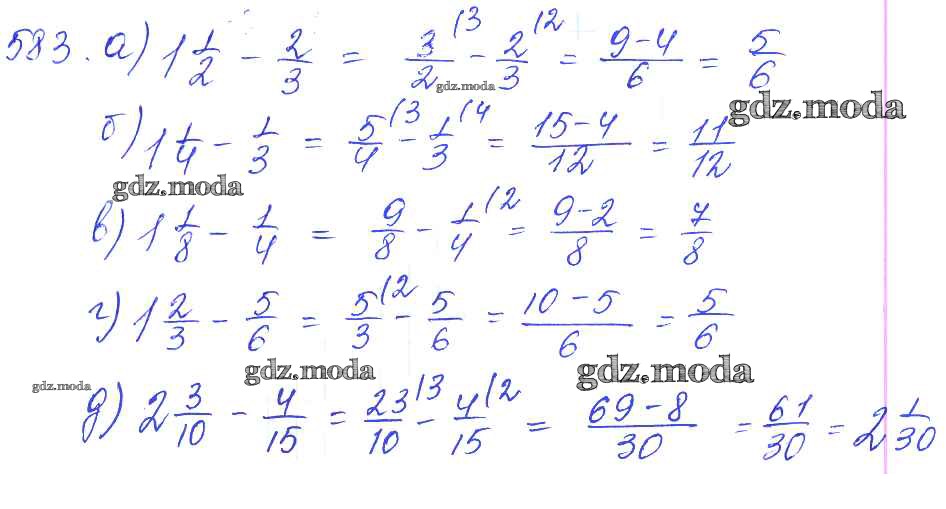 583. а) 1 1/2 - 2/3 = 3/2 (3 - 2/3 (2 = 9-4/6 = 5/6
gdz.moda
gdz.moda
б) 1 1/4 - 1/3 = 5/4 (3 - 1/3 (4 = 15-4/12 = 11/12
gdz.moda
в) 1 1/8 - 1/4 = 9/8 - 1/4 (2 = 9-2/8 = 7/8
г) 1 2/3 - 5/6 = 5/3 (2 - 5/6 = 10-5/6 = 5/6
gdz.moda gdz.moda
gdz.moda
д) 2 3/10 - 4/15 = 23/10 (3 - 4/15 (2 = 69-8/30 = 61/30 = 2 1/30